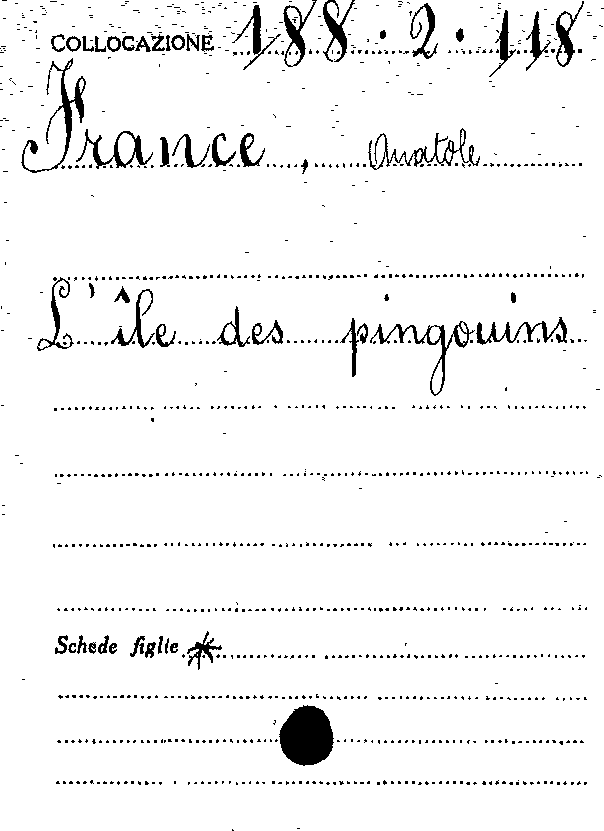 COLLOCAZIONE 188.2.118
France, Anatole
L'île des pingouins
Schede figlie *